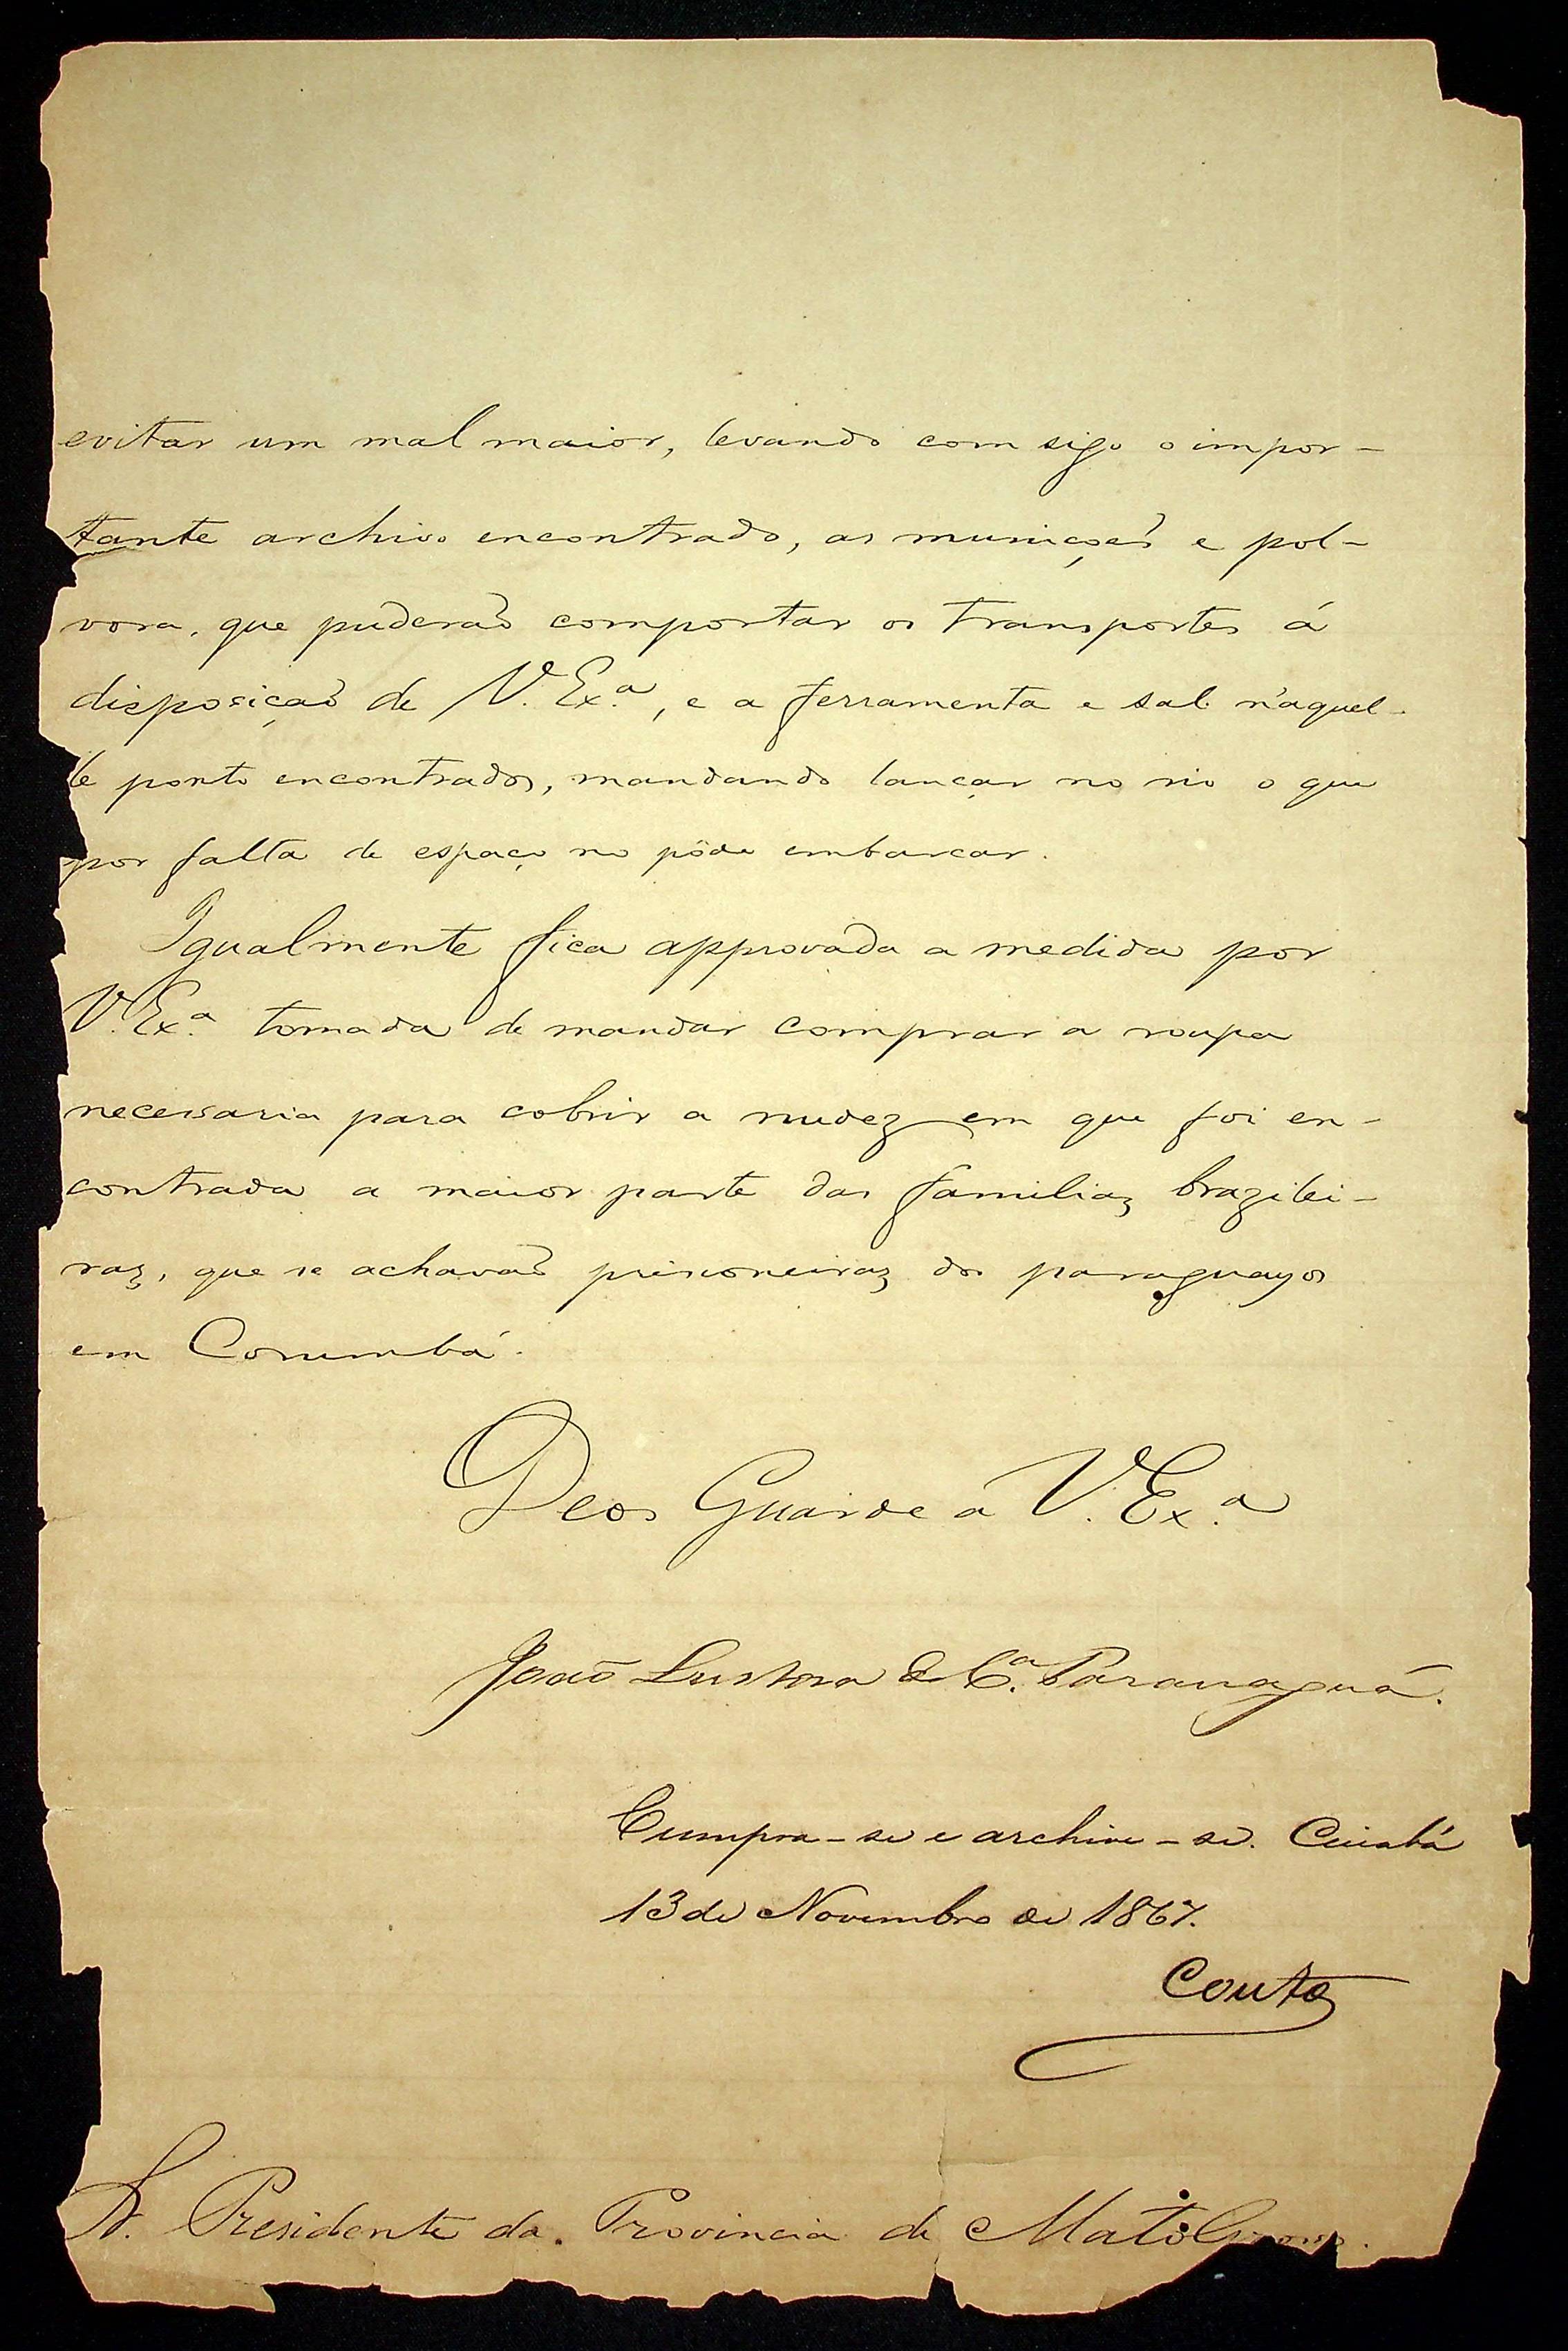 evitar um mal maior, levando com sigo o impor-
tante archivo encontrado, as municçoẽs e pol-
vora, que puderaõ comportar os transportes á
disposiçaõ de V. Ex.ª, e a ferramenta e sal n'aquel-
le ponto encontrados, mandando lançar no rio o que
por falta de espaço no pôde embarcar.
Igualmente fica approvada a medida por
V. Ex.ª tomada de mandar comprar a roupa
necessaria para cobrir a nudez em que foi en-
contrada a maior parte das familias brazilei-
ras, que se achavaõ prisioneiras dos paraguayos
em Corumbá.
Deos Guarde a V. Ex.ª
João Lustosa da C.ª Paranaguá.
Cumpra-se e archive-se. Cuiabá
13 de Novembro de 1867.
Couto
Sr. Presidente da Provincia de Mato Grosso.